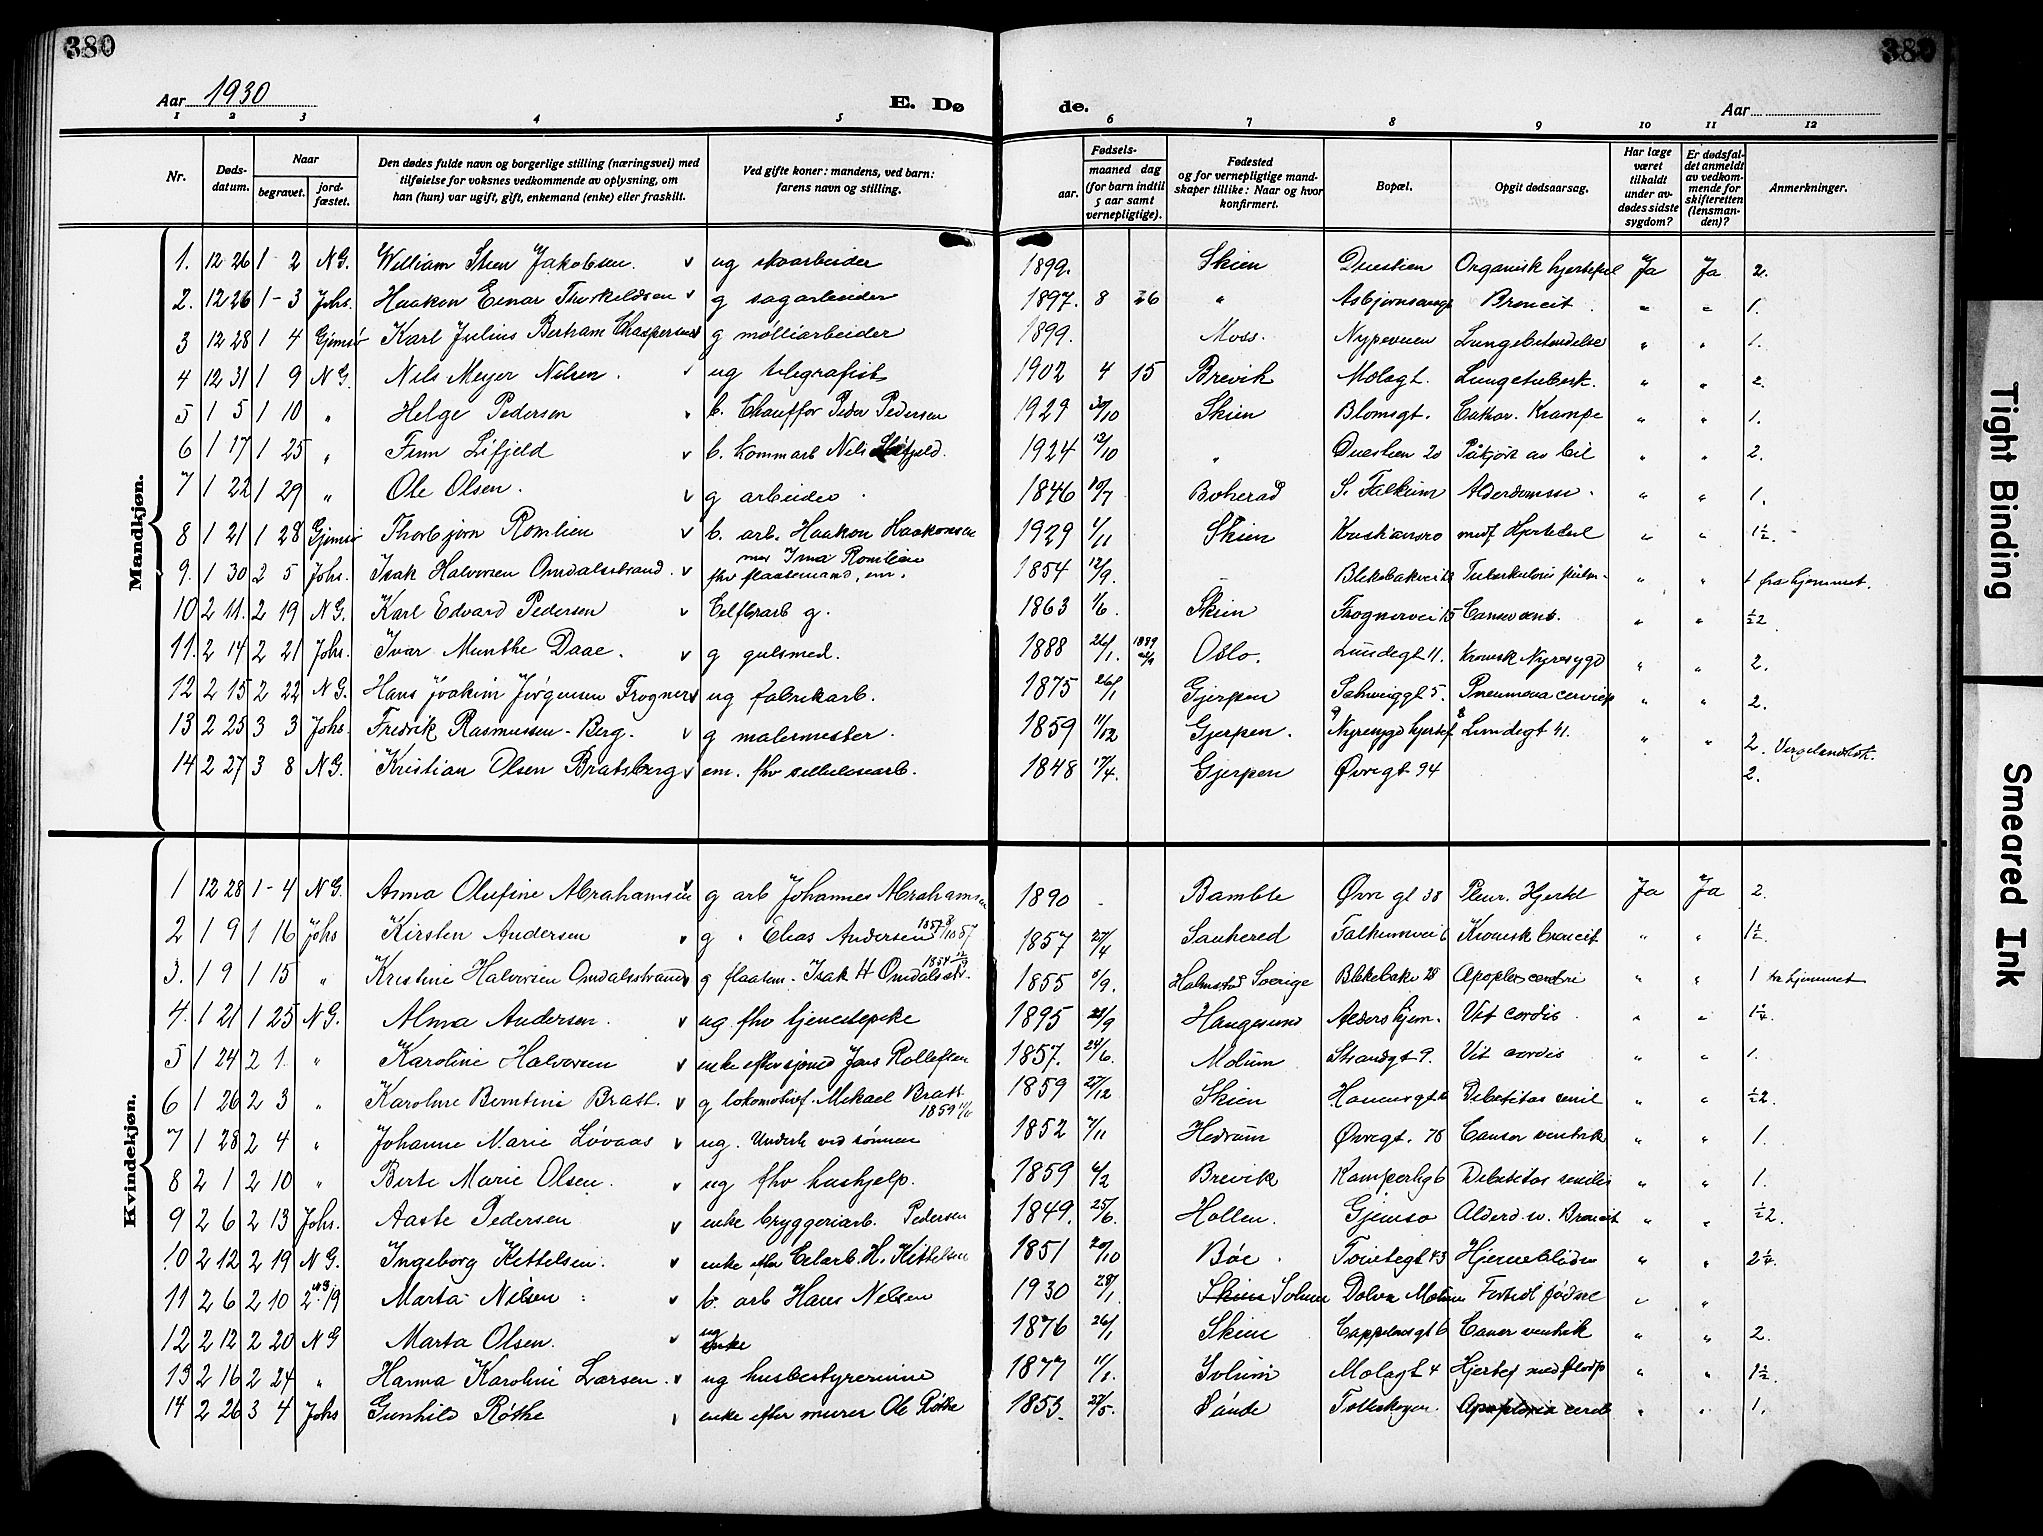 380
380
Aar 1930
E. Dø de.
Aar
1 2 3 4 5 6 7 8 9 10 11 12
Nr.
Døds-
datum.
Naar
begravet.
jord-
fæstet.
Den dødes fulde navn og borgerlige stilling (næringsvei) med
tilføielse for voksnes vedkommende av oplysning, om
han (hun) var ugift, gift, enkemand (enke) eller fraskilt.
Ved gifte koner: mandens, ved barn:
farens navn og stilling.
Fødsels-
aar.
maaned dag
(for barn indtil
5 aar samt
vernepligtige).
Fødested
og for vernepligtige mand-
skaper tillike: Naar og hvor
konfirmert.
Bopæl.
Opgit dødsaarsag.
Har læge
været
tilkaldt
under av-
dødes sidste
sygdom?
Er dødsfal-
det anmeldt
av vedkom-
mende for
skifteretten
(lensman-
den)?
Anmerkninger.
Mandkjøn.
1. 12 26 1 - 2 N G. William Sten Jakobsen. v ug skoarbeider 1899. Skien Duestien Organisk hjertefeil Ja Ja 2.
2. 12 26 1 - 3 Johs. Haakon Einar Thorkildsen v g sagarbeider 1897. 8 26 " Broncit 1.
3 12 28 1 4 Gjemsø Karl Julius Bertram Chaspersen g møllearbeider 1899. Moss. Nypeveien Lungebetendelse " " 1.
4 12 31 1 9 N G. Nils Meyer Nilsen. ug telegrafist 1902 4 15 Brevik Molagt. Lungetuberk. " " 2.
5 1 5 1 10 " Helge Pedersen b. Chauffør Peder Pedersen 1929 30/10 Skien Blomsgt. Krampe " " 1.
6 1 17 1 25 " Finn Lifjeld v b. Kommarb Nils Lifjeld. 1924 12/10 " Duestien 20 Påkjørt av bil " " 2.
7 1 22 1 29 " Ole Olsen. v g arbeider 1846 10/7 Boherad S. Falkum " " 1.
8 1 21 1 28 Gjemsø Thorbjørn Romlien v b. arb. Haakon Haakonsen 1929 1/11 Skien medf Hjertefeil " " 1½.
mor Irma Romlien
9. 1 30 2 5 Johs. Isak Halvorsen Omdalsstrand. v fhv flaatemand, em. 1854 12/9. Tuberkulose pulm. " " 1 fra hjemmet.
10 2 11. 2 19 N G. Karl Edvard Pedersen v g. 1863 1/6. Skien Frognervei 15 " " ½2
11. 2 14 2 21 Johs. Ivar Munthe Daae. v g gulsmed. 1888 26/1. 1889 Oslo. Lundegt 11. Kronisk Nyresygd " " 2.
12 2 15 2 22 N G. Hans Joakim Jørgensen Frogner v ug fabrikarb. 1875 26/1 Gjerpen Schweiggt 5. " " 2.
13 2 25 3 3 Johs. Fredrik Rasmussen-Berg. v g malermester. 1859 11/12 Gjerpen. Nyresygd hjertef Lundegt 41. " " 2. Vergelandsk.
14 2 27 3 8 N G. Kristian Olsen Bratsberg v em. fhv cellulosearb. 1848 17/4. Gjerpen Øvregt 94 2.
Kvindekjøn.
1 12 28 1 - 4 N G. Anna Olufine Abrahamsen v g arb Johannes Abrahamsen 1890 - Bamble Øvre gt 38 Pleur. Hjertef Ja Ja 2.
2 1 9 1 16 Johs Kirsten Andersen v g " Elias Andersen 1857 27/4 Sauherad Falkumvei 6 Kronisk broncit " " 1½.
3. 1 9 1 15 " Kristine Halvorsen Omdalsstrand v g flaatem. Isak H Omdalsstr. 1855 5/9. Halmstad Sverige Blekebakv 28 Apoplex cerebri " " 1 fra hjemmet
4. 1 21 1 25 N G. Alma Andersen. v ug fhv tjenestepike 1895 21/9 Haugesund Aldershjem. Vit cordis " " 1¼.
5 1 24 2 1. " Karoline Halvorsen v enke efter sjømd Jørs Rollefsen 1857. 24/6. Molum Strandgt 9. Vit cordis " " 1.
6 1 26 2 3 " Karoline Berntine Bratt. v g lokomotivf. Mikael Bratt 1859 27/12 Skien Debilitas senil " " ½2.
7 1 28 2 4 " Johanne Marie Løvaas v ug. Underh ved sønnen 1852 7/11 Hedrum Øvregt. 78 Cancer ventrik " " 1.
8 2 1 2 10 " Berte Marie Olsen. v ug fhv hushjelp. 1859 6/2 Brevik Debilitas senilis " " 1.
9 2 6 2 13 Johs. Aaste Pedersen v enke bryggeriarb. Pedersen 1849. 25/6. Hollen. Gjemsø Alderd. Broncit " " ½2.
10 2 12 2 19 N G. Ingeborg Kittelsen. v enke efter H. Kittelsen 1851 20/10 Bøe Hjerneblødn " " 2¼.
11 2 6 2 10 Marta Nilsen v b. arb Hans Nelsen 1930 28/1. Skien Solum Fortidl fødsel " "
12 2 12 2 20 N G Marta Olsen. v ug enke 1876 26/1 Skien Cappelensgt 6 Cancer ventrik " " 2.
13 2 16 2 24 " Hanna Karoline Larsen. v ug husbestyrerinne 1877 11/1. Solum Molagt 4 " " 1½.
14 2 26 3 4 Johs Gunhild Røthe enke efter murer Ole Røthe 1853. 27/5. Sande Apoplexia cereb " " 1.
Tight Binding
Smeared Ink